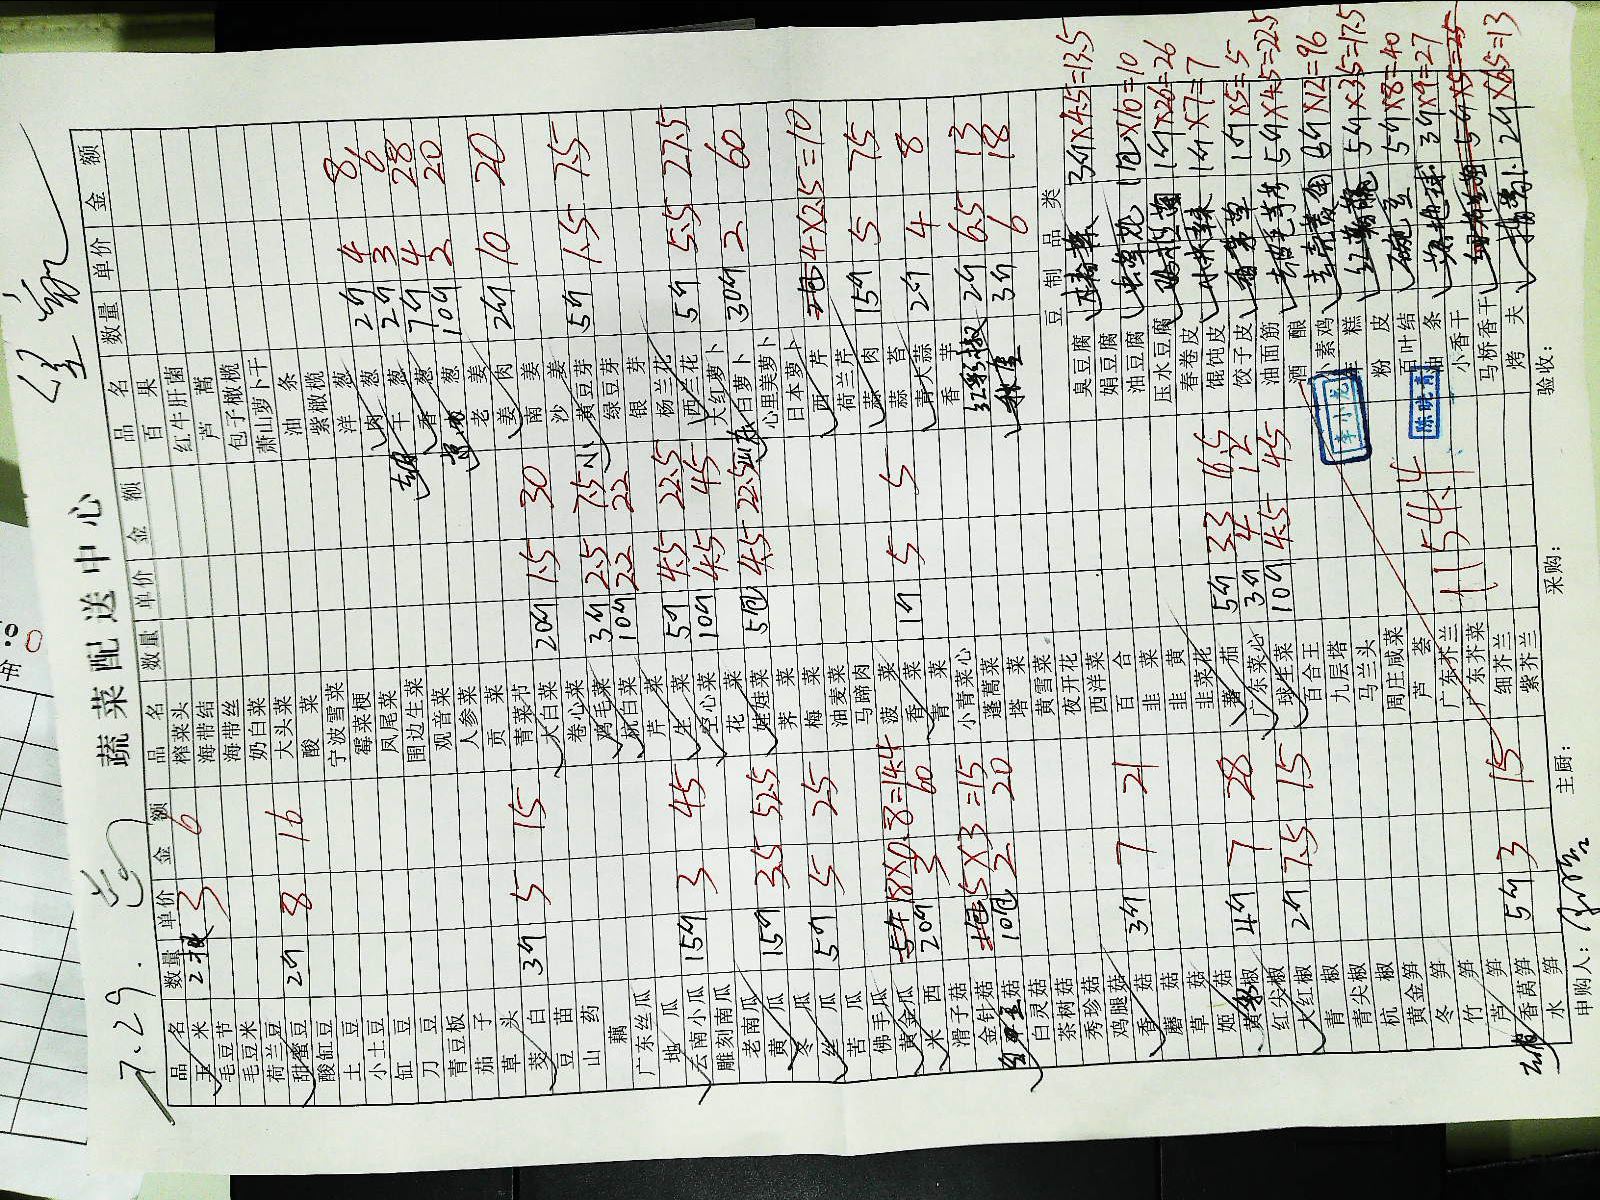 7.29.
蔬菜配送中心
品名 数量 单价 金额 品名 数量 单价 金额 品名 数量 单价 金额
玉米 2 3 6
毛豆节
毛豆米
荷兰豆
甜蜜豆 2斤 8 16
酸缸豆
土豆
小土豆
缸豆
刀豆
青豆板
茄子
草头
茭白 3斤 5 15
豆苗
山药
藕
广东丝瓜
地瓜
云南小瓜 15斤 3 45
雕刻南瓜
老南瓜
黄瓜 15斤 3.5 52.5
冬瓜
丝瓜 5斤 5 25
苦瓜
佛手瓜
黄金瓜 18×0.8=14.4
米西 20斤 3 60
滑子菇
金针菇 5×3=15
10包 2 20
白灵菇
茶树菇
秀珍菇
鸡腿菇
香菇 3斤 7 21
蘑菇
草菇
姬菇
黄彩椒 4斤 7 28
红尖椒
大红椒 2斤 7.5 15
青椒
青尖椒
杭椒
黄金笋
冬笋
竹笋
芦笋
香莴笋 5斤 3 15
水笋
榨菜头
海带结
海带丝
奶白菜
大头菜
酸菜
宁波雪菜
霉菜梗
凤尾菜
围边生菜
观音菜
人参菜
贡菜
青菜节
大白菜 20斤 1.5 30
卷心菜
鸡毛菜 3斤 2.5 7.5
杭白菜 10斤 2.2 22
芹菜
生菜 5斤 4.5 22.5
空心菜 10斤 4.5 45
花菜
娃娃菜 5包 4.5 22.5
荠菜
梅菜
油麦菜
马蹄肉
菠菜
香菜 1斤 5 5
青菜
小青菜心
蓬蒿菜
塔菜
黄雪菜
夜开花
西洋菜
百合
韭菜
韭黄
韭菜花
蕃茄 5斤 3.3 16.5
广东菜心 3斤 4 12
球生菜 10斤 4.5 45
百合王
九层塔
马兰头
周庄咸菜
芦荟
广东芥兰
广东芥菜
细芥兰
紫芥兰
1154.4
百果
红牛肝菌
芦蒿
包子橄榄
萧山萝卜干
油条
紫橄榄
洋葱 2斤 4 8
肉葱 2斤 3 6
干葱 7斤 4 28
香葱 10斤 2 20
老姜
姜肉 2斤 10 20
南姜
沙姜
黄豆芽 5斤 1.5 7.5
绿豆芽
银芽
杨兰花
西兰花 5斤 5.5 27.5
大红萝卜
白萝卜 30斤 2 60
心里美萝卜
日本萝卜
西芹 4×2.5=10
荷兰芹
蒜肉 15斤 5 75
蒜苔
青大蒜 2斤 4 8
香芋
红彩椒 2斤 6.5 13
3斤 6 18
豆制品类
臭豆腐 3斤×4.5=13.5
娟豆腐
油豆腐 1包×10=10
压水豆腐 1斤×26=26
春卷皮 小米辣 1斤×7=7
馄饨皮
饺子皮 香茅草 1斤×5=5
油面筋 5斤×4.5=22.5
酒酿 8斤×12=96
小素鸡
年糕 5斤×3.5=17.5
粉皮 5斤×8=40
百叶结
油条 3斤×9=27
小香干 5斤×5=25
马桥香干
烤夫 2斤×6.5=13
李小龙
陈晓青
申购人： 主厨： 采购： 验收：